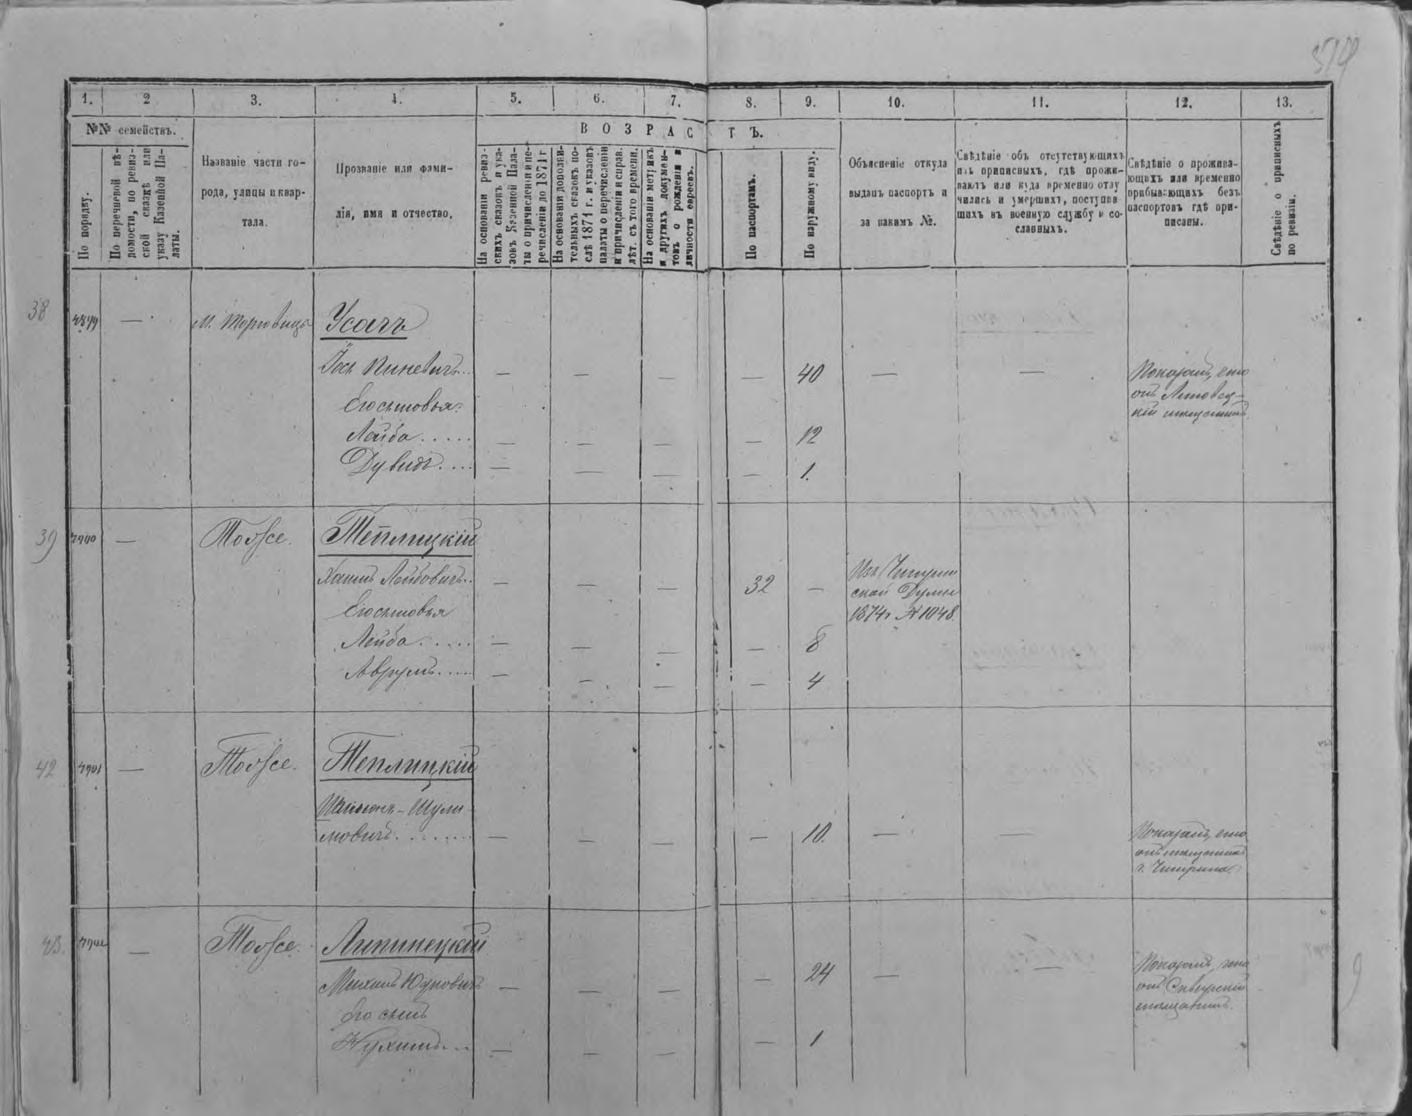 519
1. 2 3. 4. 5. 6. 7. 8. 9. 10. 11. 12. 13.
№№ семействъ.
ВОЗРАСТЪ.
По порядку.
По перечневой вѣ-
домости, по ревиз-
ской сказкѣ или
указу Казенной Па-
латы.
Названіе части го-
рода, улицы и квар-
тала.
Прозваніе или фами-
лія, имя и отчество.
На основаніи ревиз-
скихъ сказокъ и ука-
зовъ Казенной Пала-
ты о причисленіи и пе-
речисленіи до 1871 г
На основаніи дополни-
тельныхъ сказокъ по-
слѣ 1871 г. и указовъ
палаты о перечисленіи
и причисленіи и справ.
лѣт. съ того времени.
На основаніи метрикъ
и другихъ докумен-
товъ о рожденіи и
личности евреевъ.
По паспортамъ.
По наружному виду.
Объясненіе откуда
выданъ паспортъ и
за какимъ №.
Свѣдѣніе объ отсутствующихъ
изъ приписныхъ, гдѣ прожи-
ваютъ или куда временно отлу
чились и умершихъ, поступив
шихъ въ военную службу и со-
сланныхъ.
Свѣдѣніе о прожива-
ющихъ или временно
прибывающихъ безъ
паспортовъ гдѣ при-
писаны.
Свѣдѣніе о приписныхъ
по ревизіи.
38
м. Торговица
Усачъ
Іось Пиневичъ
40
Показалъ, что
онъ
Его сыновья:
Лейба 12
Дувидъ 1.
39
7900 Тоже. Теплицкій
Хаимъ Лейбовичъ 32
Изъ Чигрин
ской Думы
1874 г № 1048
Его сыновья
Лейба 8
Аврумъ 4
42
7901 Тоже. Теплицкій
Шулимовичъ 10.
Показалъ, что
онъ мѣщанинъ
г. Чигрина
43.
7902 Тоже. Липинецкій
24
Показалъ, что
онъ Сквирскій
мѣщанинъ.
Его сынъ
Нухимъ 1